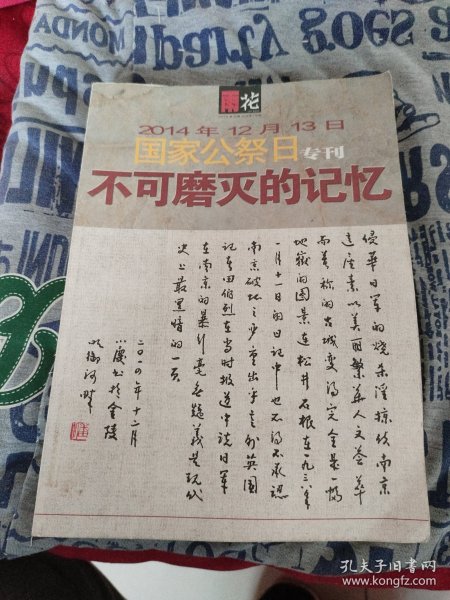 雨花
2014年12月13日
国家公祭日专刊
不可磨灭的记忆
侵華日军的烧杀淫掠使南京
这座素以美丽繁华人文荟萃
而著称的古城变得完全是一幅
地狱的图景连松井石根在一九三八年
一月十一日的日记中也不得不承认
南京破坏之
出乎意外英国
记者田伯烈在当时报道中说日军
在南京的暴行毫无疑义是现代
史上最黑暗的一页
二〇〇四年十二月
书于金陵
御河畔
MONDA
Party goes
孔夫子旧书网
www.kongfz.com